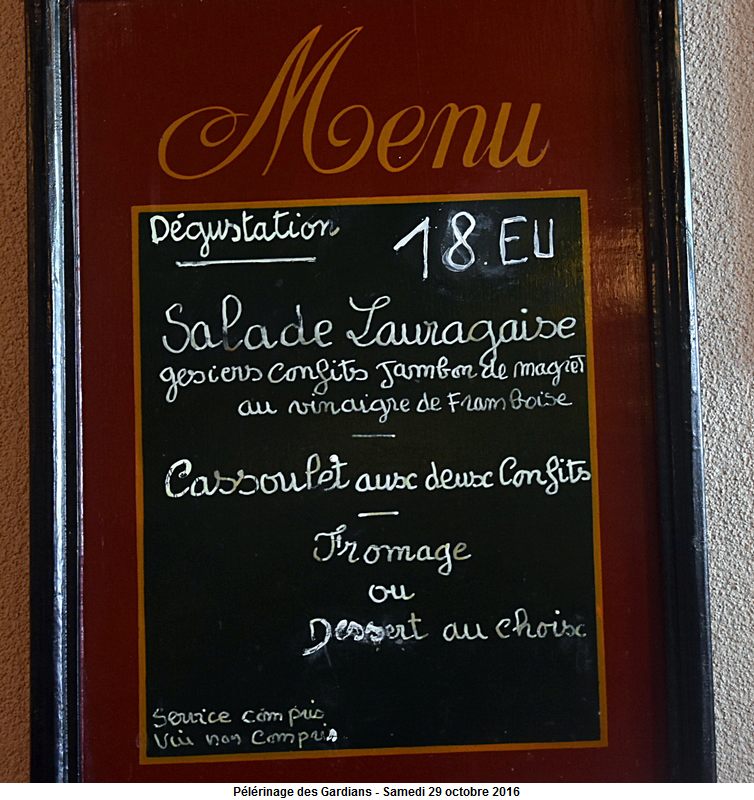 Menu
Dégustation 18 EU
Salade Lauragaise
gesiers Confits Jambon de magret
au vinaigre de Framboise
Cassoulet aux deux Confits
Fromage
ou
Dessert au choix
Service compris
Vin non Compris
Pélérinage des Gardians - Samedi 29 octobre 2016